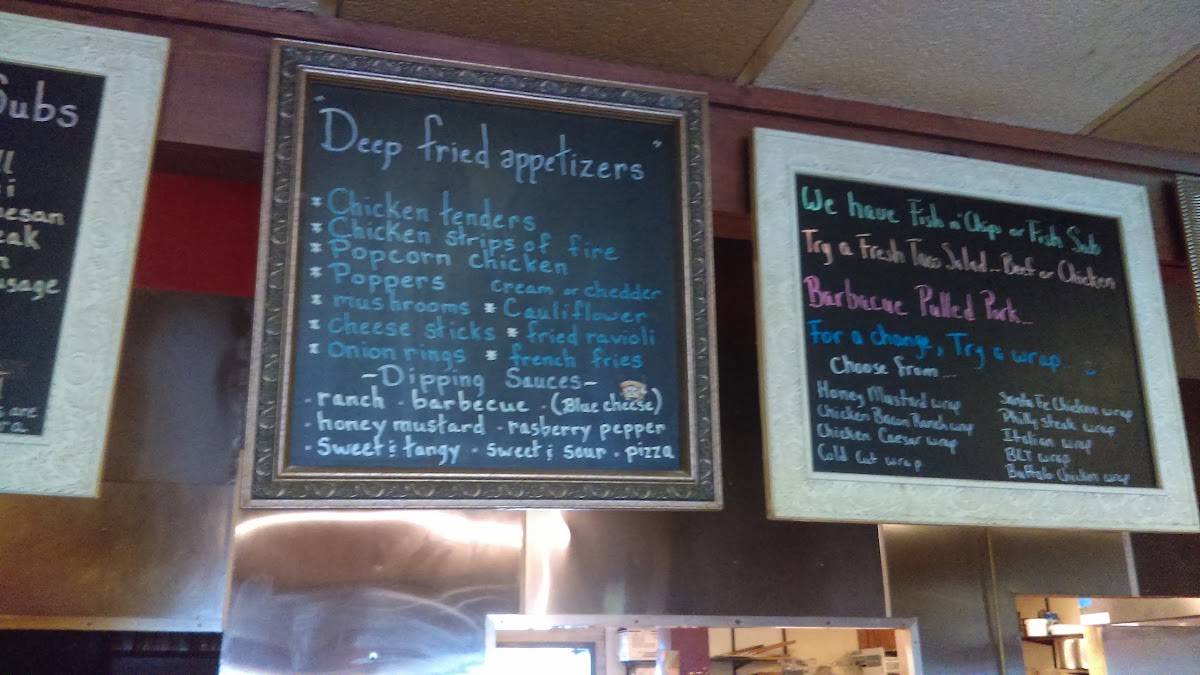 Subs
"Deep fried appetizers"
* Chicken tenders
* Chicken strips of fire
* Popcorn chicken
* Poppers cream or chedder
* mushrooms * Cauliflower
* Cheese sticks * fried ravioli
* Onion rings * french fries
-Dipping Sauces-
· ranch · barbecue · (Blue cheese)
· honey mustard · rasberry pepper
· Sweet & tangy · sweet & sour · pizza
We have Fish n' Chips or Fish Sub
Try a Fresh Taco Salad... Beef or Chicken
Barbacue Pulled Pork...
For a change, Try a wrap...
Choose From...
Honey Mustard wrap
Chicken Bacon Ranch wrap
Chicken Caesar wrap
Cold Cut wrap
Santa Fe Chicken wrap
Philly steak wrap
Italian wrap
BLT wrap
Buffalo Chicken wrap